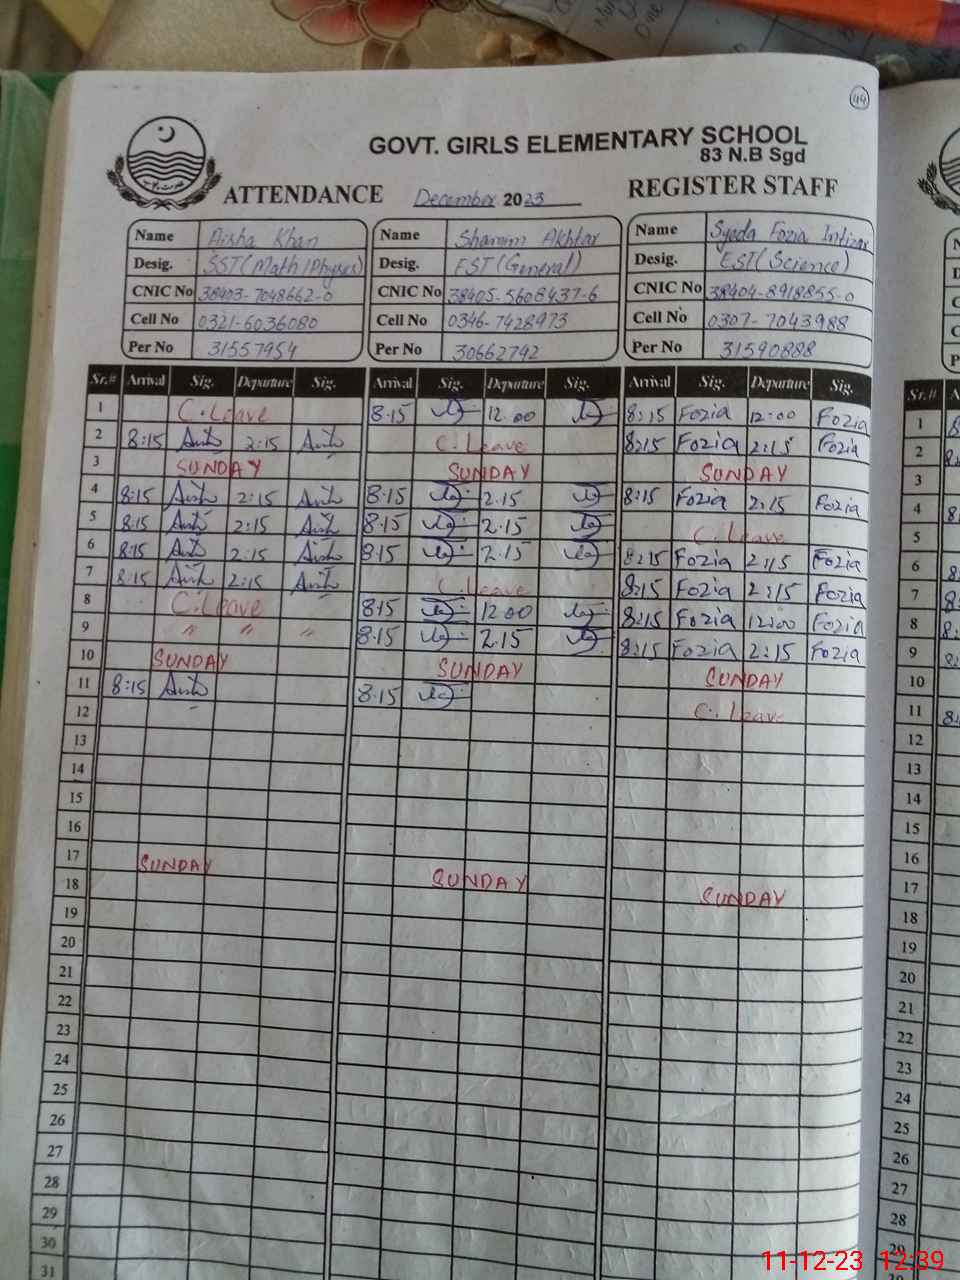 44
GOVT. GIRLS ELEMENTARY SCHOOL
83 N.B Sgd
ATTENDANCE December 2023 REGISTER STAFF
Name Aisha Khan Name Shamim Akhtar Name Syeda Fozia Intizar
Desig. SST(Math/Physics) Desig. EST(General) Desig. EST(Science)
CNIC No 38403-7048662-0 CNIC No 38405-5608437-6 CNIC No 38404-8918855-0
Cell No 0321-6036080 Cell No 0346-7428973 Cell No 0307-7043988
Per No 31557954 Per No 30662742 Per No 31590888
Sr.# Arrival Sig. Departure Sig. Arrival Sig. Departure Sig. Arrival Sig. Departure Sig.
1 C.Leave 8.15 12.00 8:15 Fozia 12:00 Fozia
2 8:15 2:15 C.Leave 8:15 Fozia 2:15 Fozia
3 SUNDAY SUNDAY SUNDAY
4 8:15 2:15 8.15 2.15 8:15 Fozia 2:15 Fozia
5 8:15 2:15 8.15 2.15 C.Leave
6 8:15 2:15 8.15 2.15 8:15 Fozia 2:15 Fozia
7 8:15 2:15 C.Leave 8:15 Fozia 2:15 Fozia
8 C.Leave 8.15 12.00 8:15 Fozia 12:00 Fozia
9 " " " 8.15 2.15 8:15 Fozia 2:15 Fozia
10 SUNDAY SUNDAY SUNDAY
11 8:15 8.15 C.Leave
12
13
14
15
16
17 SUNDAY SUNDAY SUNDAY
18
19
20
21
22
23
24
25
26
27
28
29
30
31
Sr.#
1
2
3
4
5
6
7
8
9
10
11
12
13
14
15
16
17
18
19
20
21
22
23
24
25
26
27
28
29
11-12-23 12:39